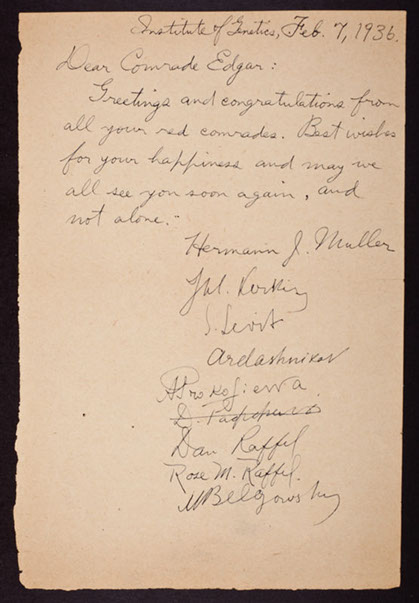 Institute of Genetics, Feb. 7, 1936.
Dear Comrade Edgar:
Greetings and congratulations from
all your red comrades. Best wishes
for your happiness and may we
all see you soon again, and
not alone.-
Hermann J. Muller
S. Levit
Ardashnikov
AProkofiewa
Dan Raffel
Rose M. Raffel.
MBelgowsky